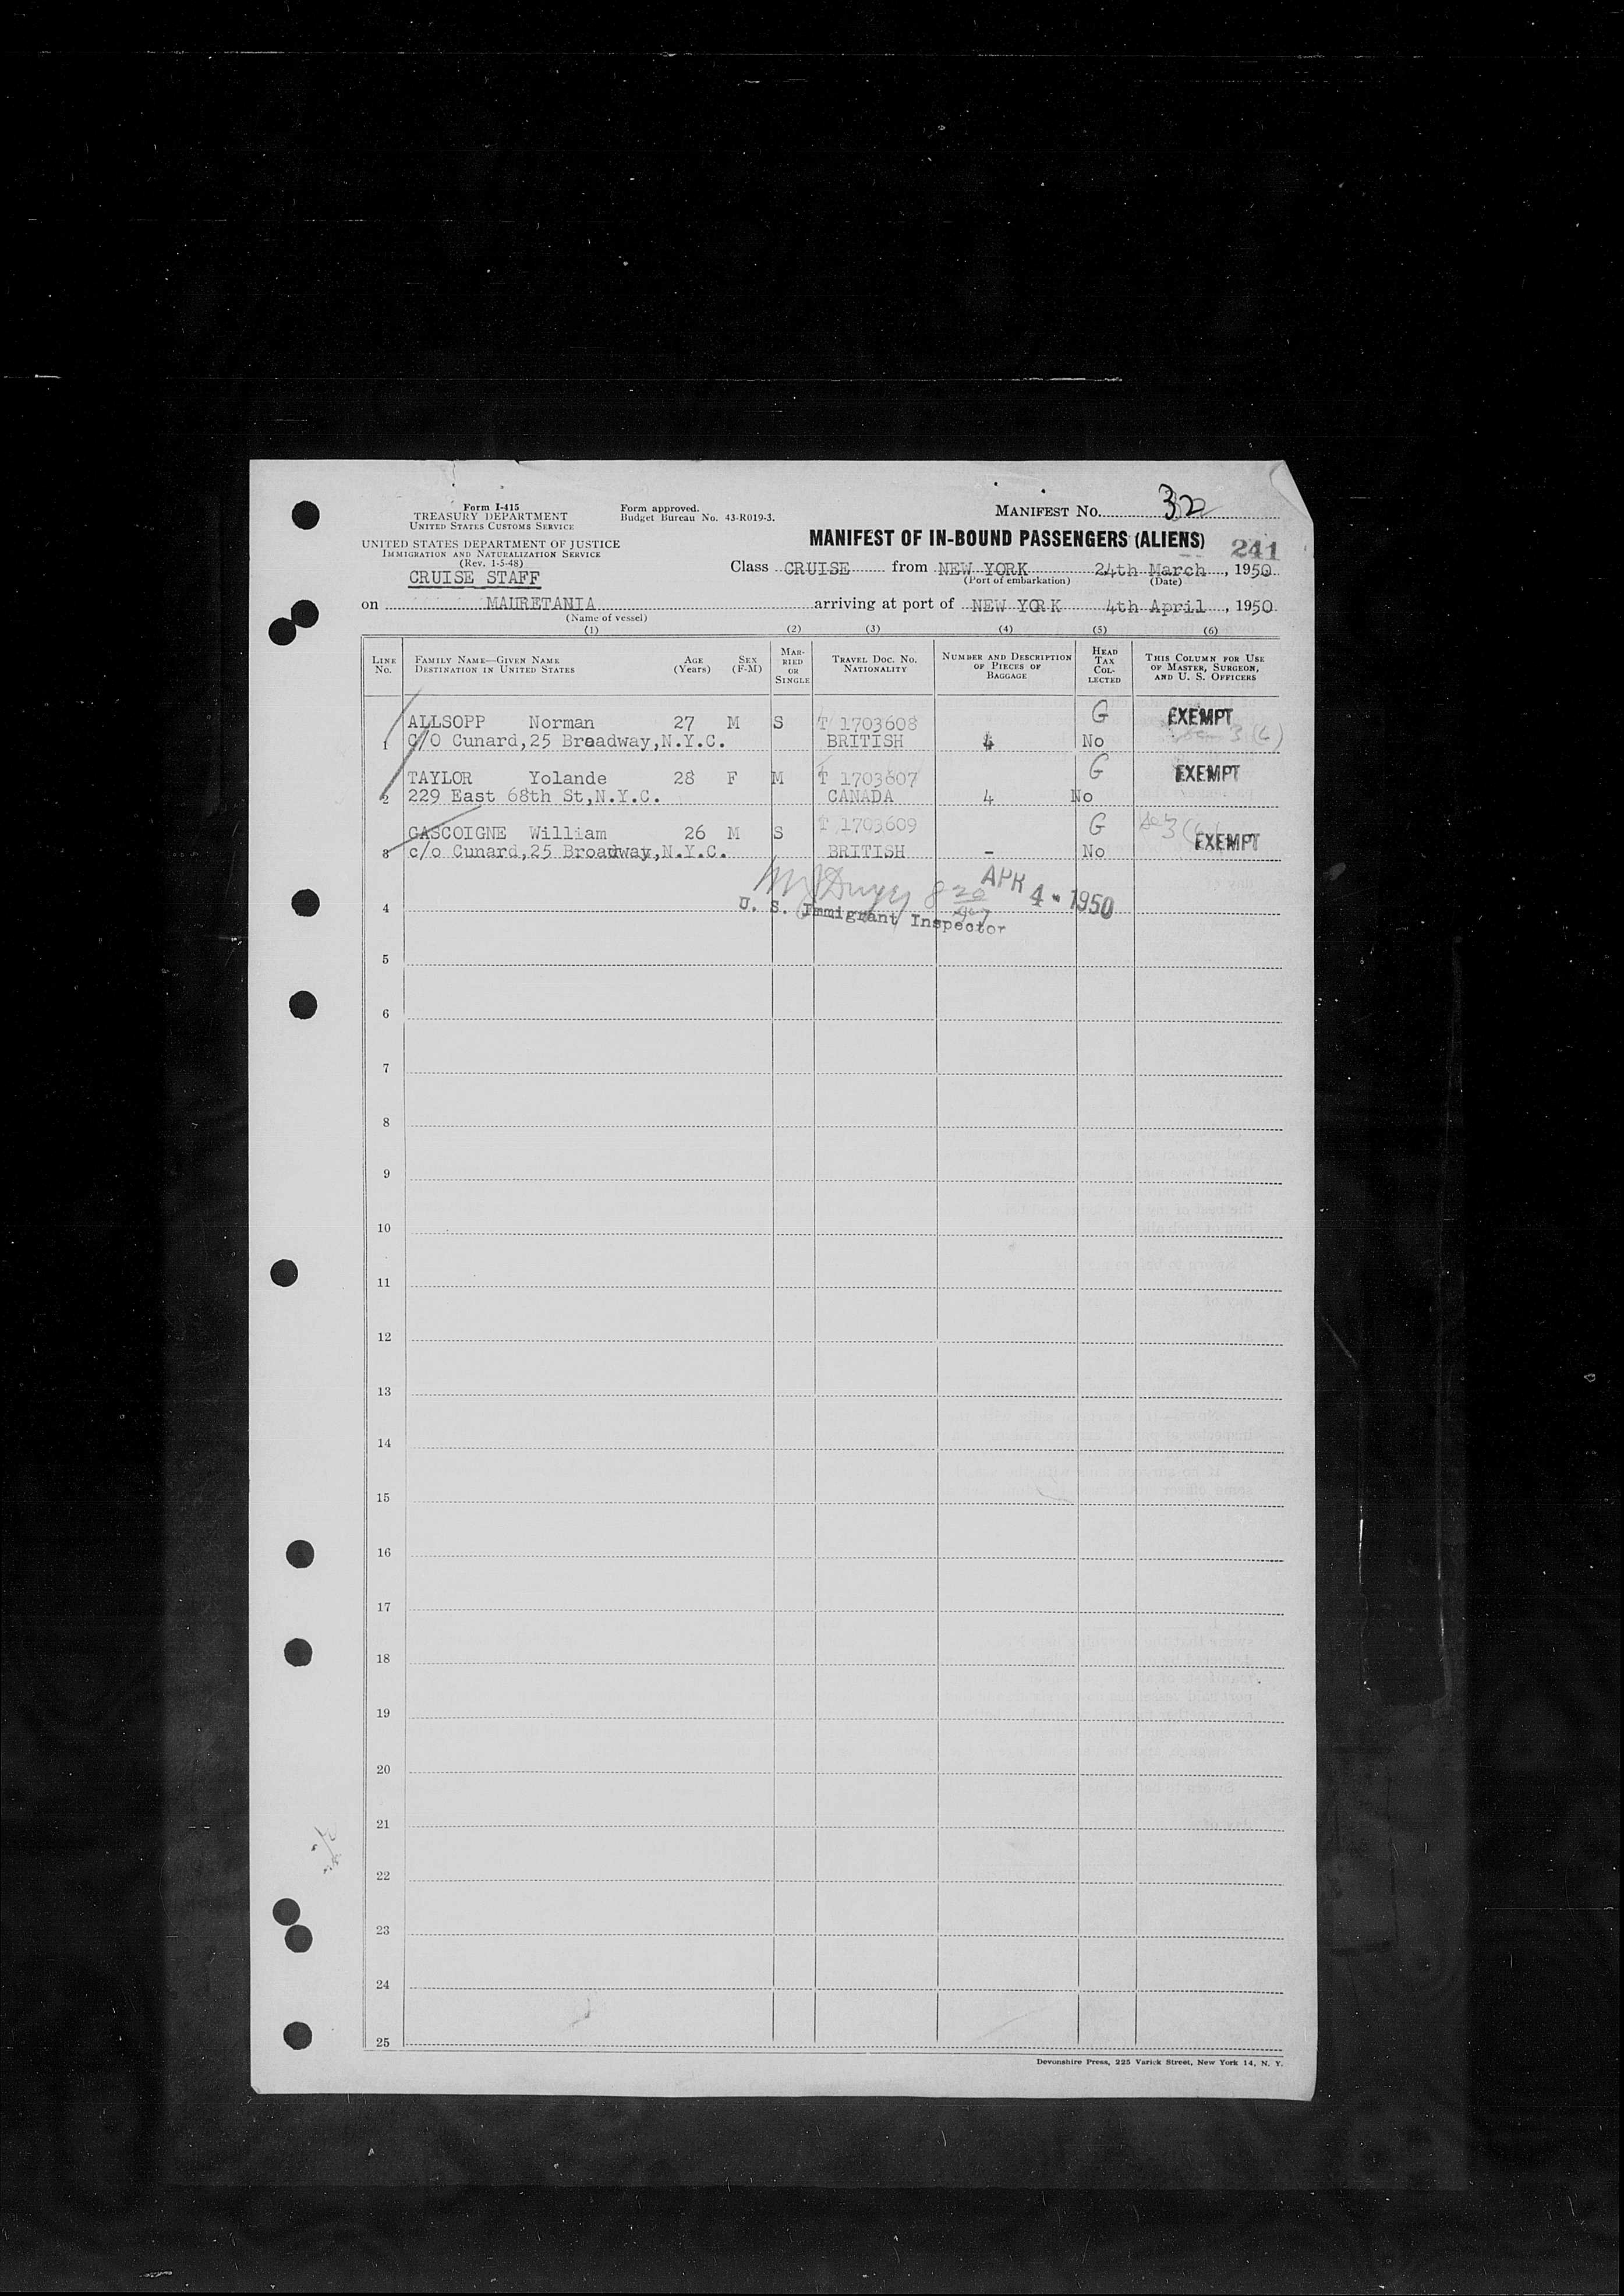 Form I-415
TREASURY DEPARTMENT
UNITED STATES CUSTOMS SERVICE
UNITED STATES DEPARTMENT OF JUSTICE
IMMIGRATION AND NATURALIZATION SERVICE
(Rev. 1-5-48)
CRUISE STAFF
Form approved.
Budget Bureau No. 43-R019-3.
MANIFEST No. 32
MANIFEST OF IN-BOUND PASSENGERS (ALIENS)
241
Class CRUISE from NEW YORK 24th March, 1950
(Port of embarkation) (Date)
on MAURETANIA arriving at port of NEW YORK 4th April, 1950
(Name of vessel)
(1) (2) (3) (4) (5) (6)
LINE No.
FAMILY NAME—GIVEN NAME
DESTINATION IN UNITED STATES
AGE (Years)
SEX (F-M)
MARRIED OR SINGLE
TRAVEL DOC. NO.
NATIONALITY
NUMBER AND DESCRIPTION OF PIECES OF BAGGAGE
HEAD TAX COLLECTED
THIS COLUMN FOR USE OF MASTER, SURGEON, AND U. S. OFFICERS
ALLSOPP Norman 27 M S T 1703608 G EXEMPT
1 C/O Cunard,25 Broadway,N.Y.C. BRITISH 4 No 3 (6)
TAYLOR Yolande 28 F M T 1703607 G EXEMPT
2 229 East 68th St,N.Y.C. CANADA 4 No
GASCOIGNE William 26 M S T 1703609 G 3 EXEMPT
3 c/o Cunard,25 Broadway,N.Y.C. BRITISH - No
APR 4 - 1950
U. S. Immigrant Inspector
4
5
6
7
8
9
10
11
12
13
14
15
16
17
18
19
20
21
22
23
24
25
Devonshire Press, 225 Varick Street, New York 14, N. Y.